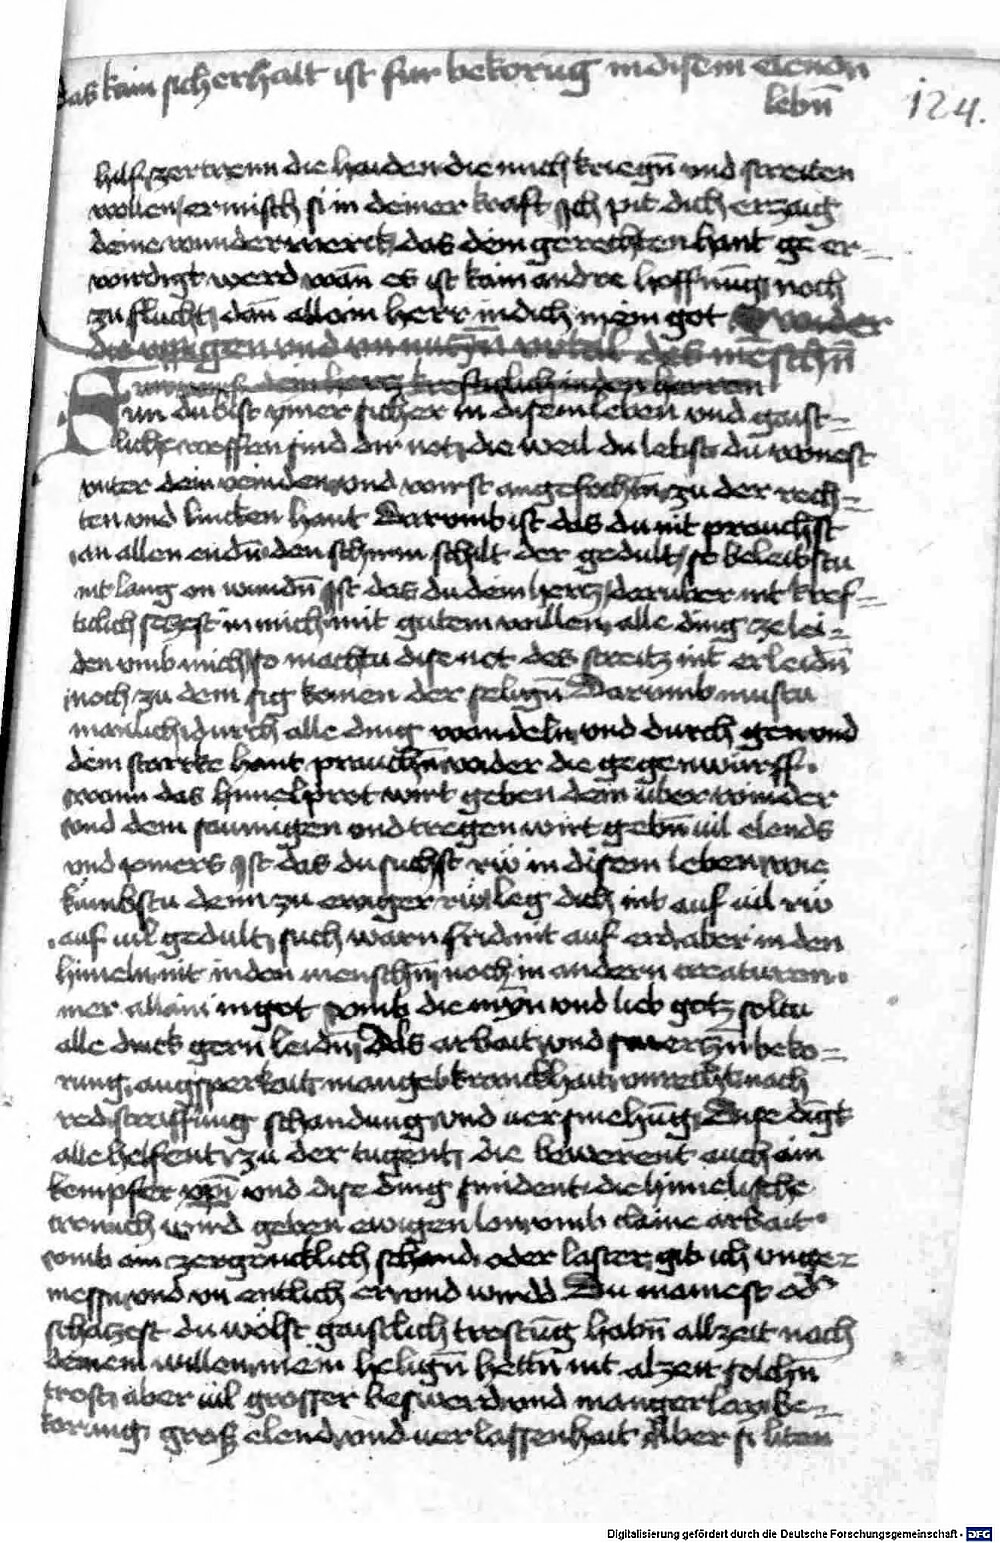 das kain sicherhalt ist fur bekorūg in disem elendn
lebn̄
124.
hilf zertrenn die haiden die mich kriegn̄ und streiten
wollen ermisch si in deiner kraft Ich pit dich erzaig
deine wunderwerck das dein gerechten hant ge er-
wirdigt werd wan̄ es ist kain andre hoffnūg noch
zu flucht dan̄ allain herr in dich mein got wider
die und urtail des mēschn̄
dein hercz krefftiglich in den herren
Sun du bist ymer sicher in disem leben und gaist-
liche woffen sind dir not die weil du lebst du wonest
unter dein veinden und wirst angefochtn̄ zu der rech-
ten und lincken hant Darumb ist das du nit prauchst
an allen enden den schirm schilt der gedult so beleibstu
nit lang on wundn̄ Ist das du dein hercz darüber nit kref-
ticlich seczest in mich mit gutem willen alle ding ze lei-
den umb mich so machtu dise not des streitz nit erleidn̄
noch zu dem sig komen der selign̄ Darumb mustu
manlich durch alle ding wandeln und durch gen und
dein starcke hant prauchn̄ wider die gegenwurff
wann das himelprot wirt geben dem überwinder
und dem saumigen und tregen wirt gebn̄ vil elends
und iomers Ist das du suchst rw in disem leben wie
kumbstu denn zu ewiger rw leg dich nit auf vil rw
auf vil gedult such warn frid nit auf erd aber in den
himeln nit in den menschn̄ noch in andern creaturen
mer allain in got vmb die myn und lieb gotz soltu
alle dinck gern leidn̄ Als arbait und smerczn̄ beko-
rung angsperkait mangel kranckhait unrecht nach
red straffung schandung und versmehūg Dise dingk
alle helfent zu der tugent die bewerent auch ain
kempfer xp̄i und dise ding smident die himelische
cron ich wird geben ewigen lon vmb claine arbait
vmb ain zergencklich schand oder laster gib ich unge-
messn und un entlich er und wirdd Du mainest od
schaczest du wolst gaistlich trostūg habn̄ allzeit nach
deinem willen mein heilign̄ hettn̄ nit alzeit solchn̄
trost aber vil grosser beswerd und mangerlay be-
korung gross elend und verlassenhait Aber si liten
Digitalisierung gefördert durch die Deutsche Forschungsgemeinschaft - DFG